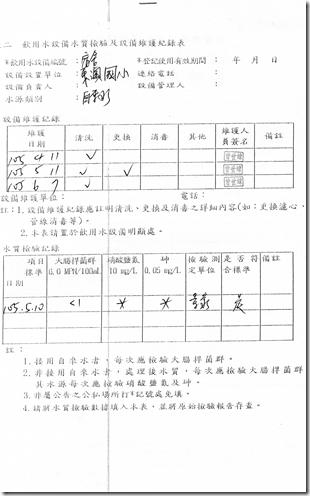 二 飲用水設備水質檢驗及設備維護紀錄表
*飲用水設備編號：
*登記使用有效期間： 年 月 日
設備設置單位：東興國小
連絡電話：
設備負責人：
設備管理人：
水源類別：自來水
設備維護紀錄
維護日期 清洗 更換 消毒 其他 維護人員簽名 備註
105 4 11 ✓
105 5 11 ✓ ✓
105 6 7 ✓
設備維護單位： 電話：
註：1.設備維護紀錄應註明清洗、更換及消毒之詳細內容(如：更換濾心、
管線消毒等)。
2.本表請置於飲用水設備明顯處。
水質檢驗紀錄
項目 標準 日期 大腸桿菌群 6.0 MPN/100mL 硝酸鹽氮 10 mg/L 砷 0.05 mg/L 檢驗測定單位 是否符合標準 備註
105.5.10 <1 * * 是
註：
1.接用自來水者，每次應檢驗大腸桿菌群。
2.非接用自來水者，處理後水質，每次應檢驗大腸桿菌群
其水源每次應檢驗硝酸鹽氮及砷。
3.非屬公告之公私場所打*記號處免填。
4.請將水質檢驗數據填入本表，並將原始檢驗報告存查。